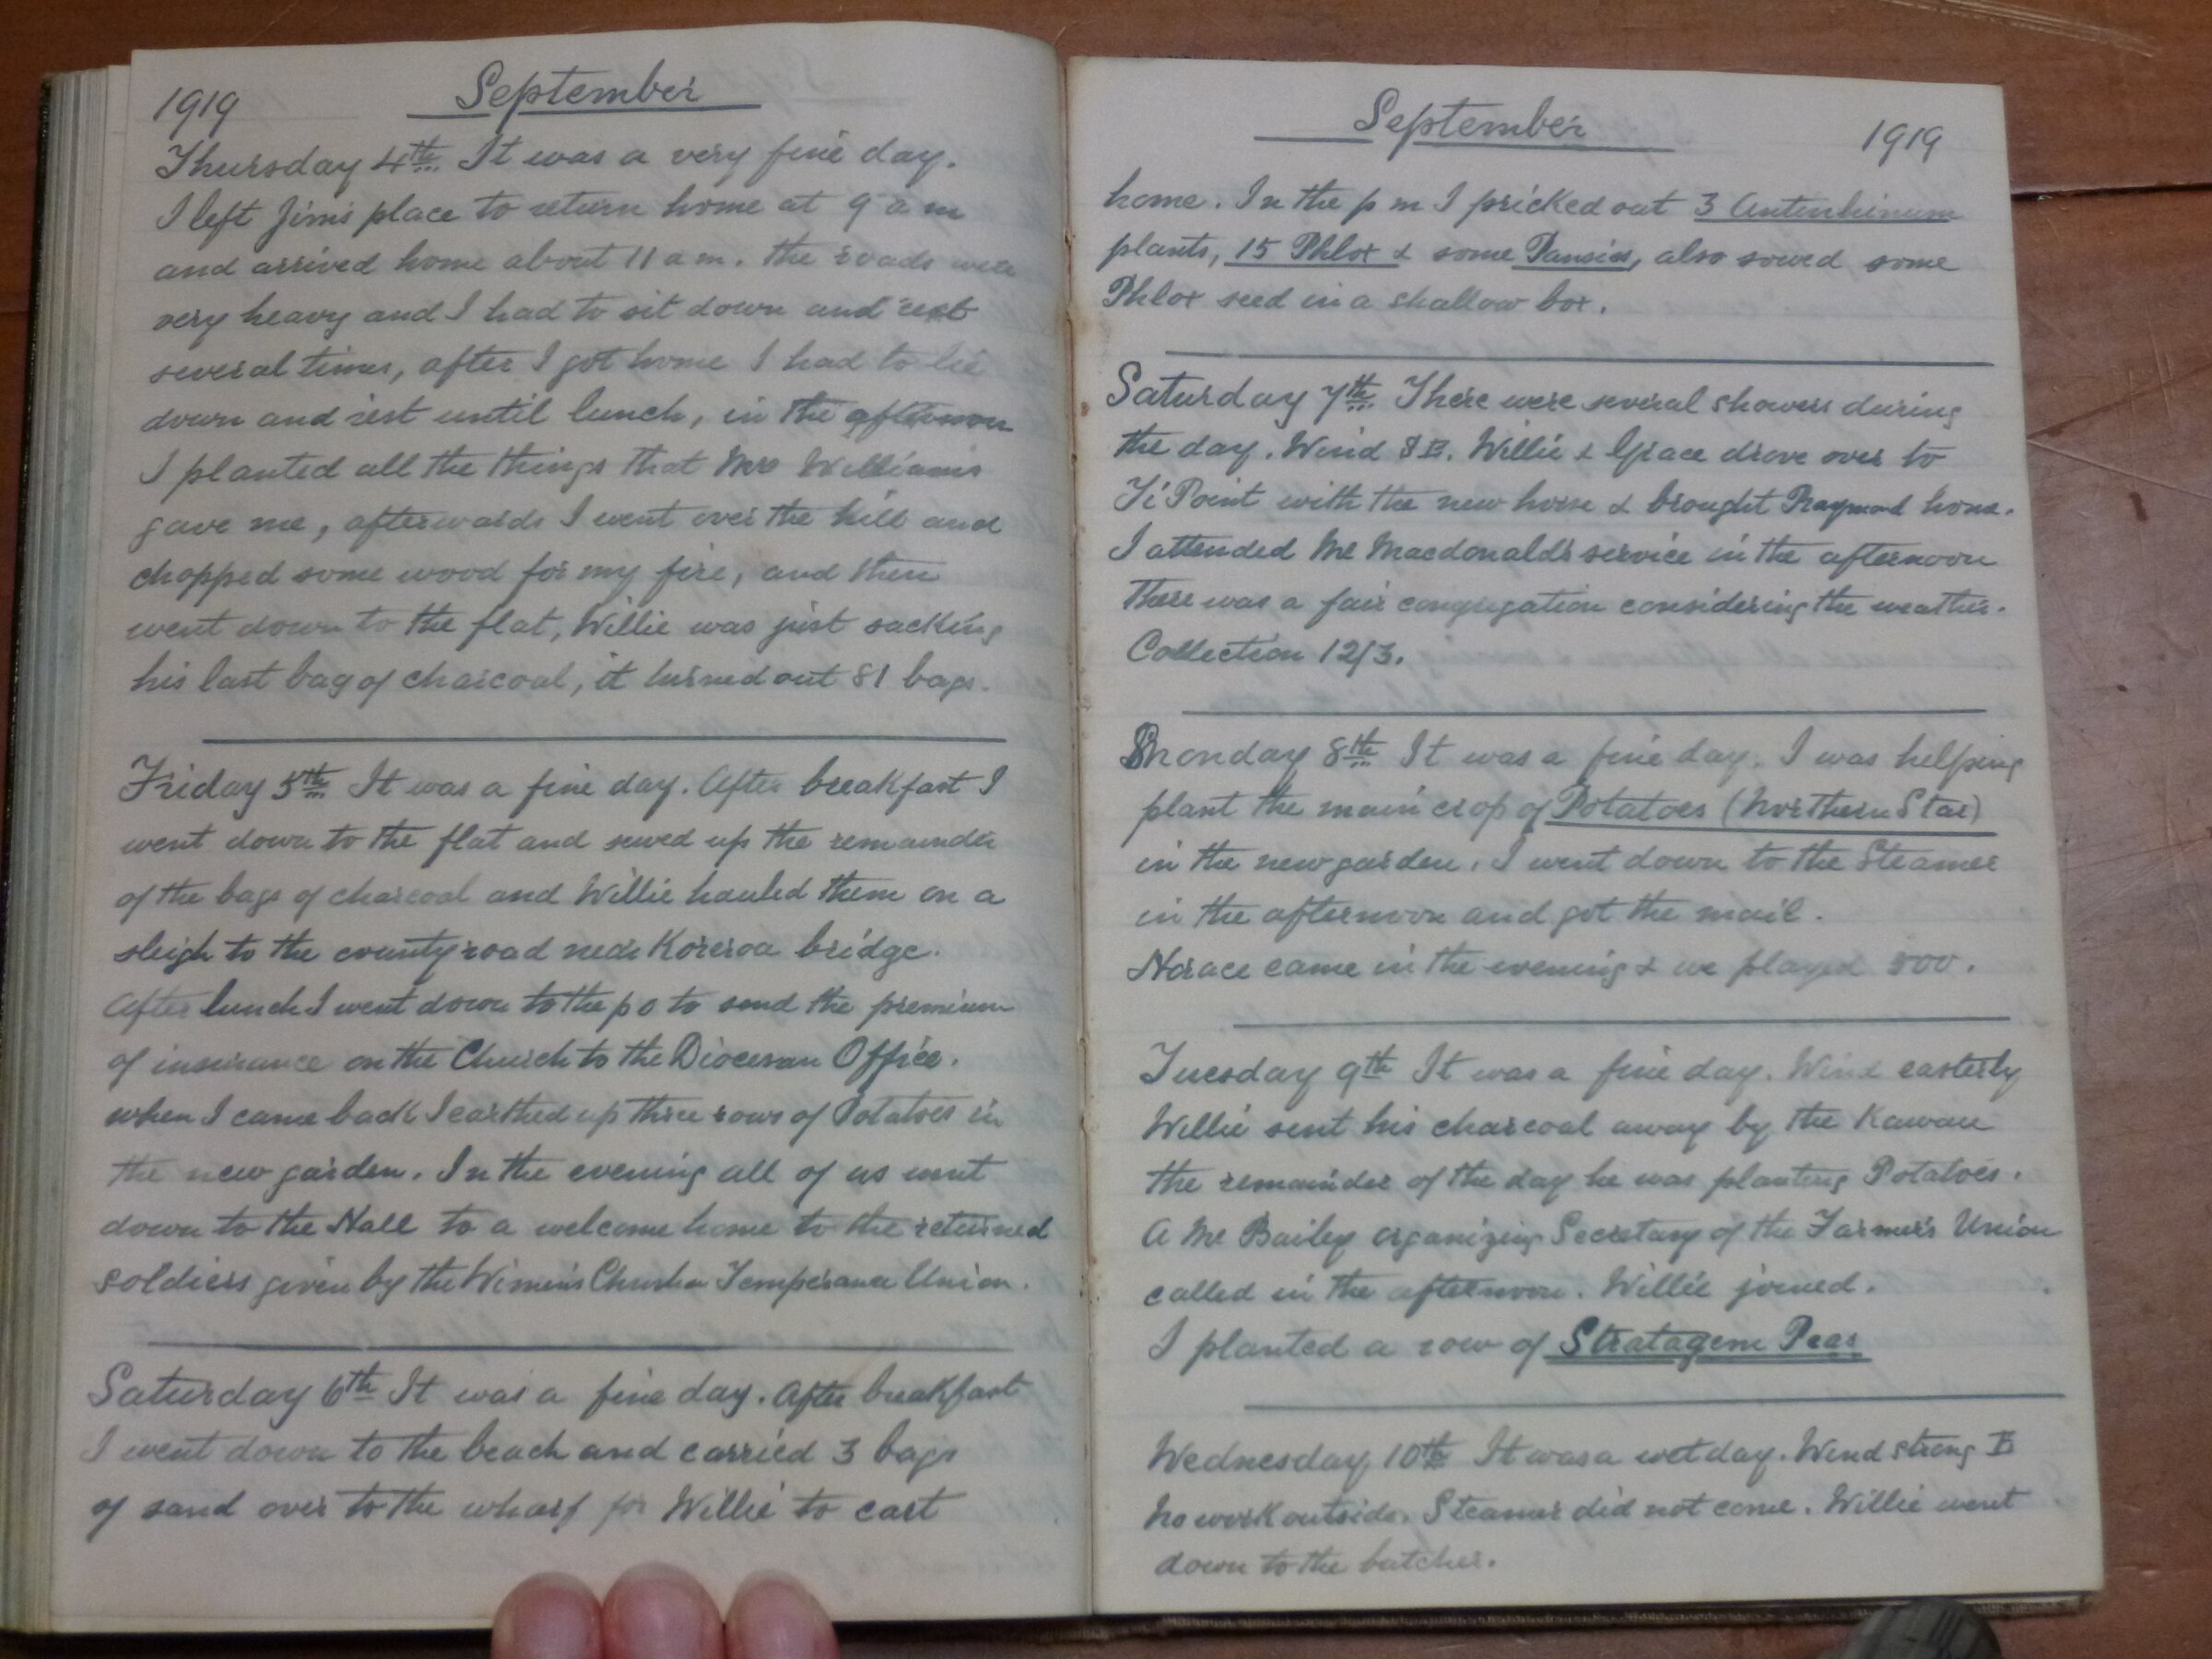 1919 September
Thursday 4th. It was a very fine day.
I left Jim's place to return home at 9 a m
and arrived home about 11 a m. the roads were
very heavy and I had to sit down and rest
several times, after I got home I had to lie
down and rest until lunch, in the afternoon
I planted all the things that Mrs Williams
gave me, afterwards I went over the hill and
chopped some wood for my fire, and then
went down to the flat, Willie was just sacking
his last bag of charcoal, it turned out 81 bags.
Friday 5th. It was a fine day. After breakfast I
went down to the flat and sewed up the remainder
of the bags of charcoal and Willie hauled them on a
sleigh to the county road near Koreroa bridge.
After lunch I went down to the p o to send the premium
of insurance on the Church to the Diocesan Office.
when I came back I earthed up three rows of Potatoes in
the new garden. In the evening all of us went
down to the Hall to a welcome home to the returned
soldiers given by the Wimen's Temperance Union.
Saturday 6th It was a fine day. After breakfast
I went down to the beach and carried 3 bags
of sand over to the wharf for Willie to cart
September 1919
home. In the p m I pricked out 3 Antirrhinum
plants, 15 Phlox & some Pansies, also sowed some
Phlox seed in a shallow box.
Saturday 7th. There were several showers during
the day. Wind S E. Willie & Grace drove over to
Ti Point with the new horse & brought Raymond home.
I attended Mr Macdonald's service in the afternoon
There was a fair congregation considering the weather.
Collection 12/3.
Monday 8th. It was a fine day. I was helping
plant the main crop of Potatoes (Northern Star)
in the new garden. I went down to the Steamer
in the afternoon and got the mail.
Horace came in the evening & we played 500.
Tuesday 9th It was a fine day. Wind easterly
Willie sent his charcoal away by the Kawau
the remainder of the day he was planting Potatoes.
A Mr Bailey organizing Secretary of the Farmer's Union
called in the afternoon. Willie joined.
I planted a row of Stratagem Peas
Wednesday 10th It was a wet day. Wind strong E
No work outside. Steamer did not come. Willie went
down to the butcher.